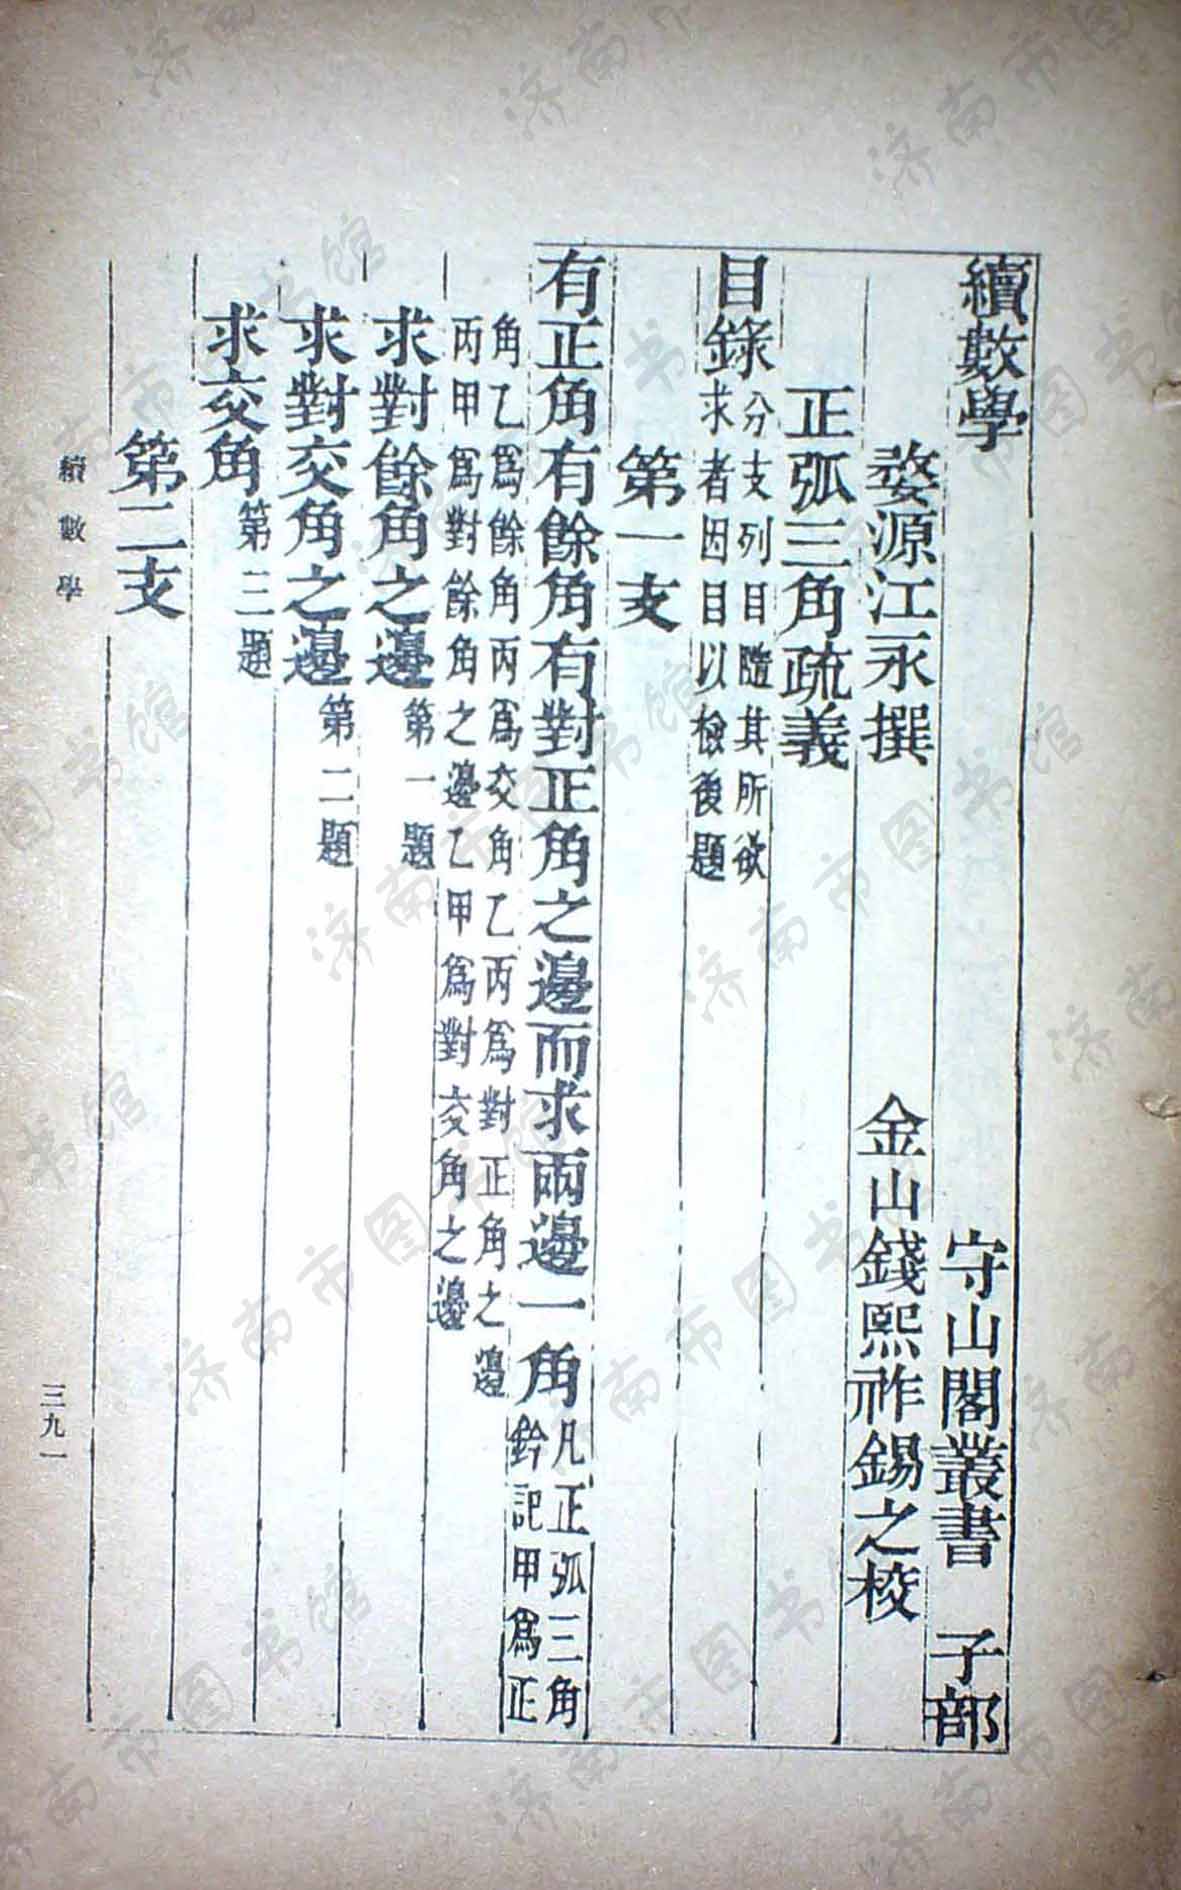 續數學　守山閣叢書　子部
婺源江永撰　金山錢熙祚錫之校
正弧三角疏義
目錄分支列目隨其所欲
求者因目以檢後題
第一支
有正角有餘角有對正角之邊而求兩邊一角凡正弧三角
鈐記甲爲正
角乙爲餘角丙爲交角乙丙爲對正角之邊
丙甲爲對餘角之邊乙甲爲對交角之邊
求對餘角之邊第一題
求對交角之邊第二題
求交角第三題
第二支
續數學
三九一
济南市图书馆